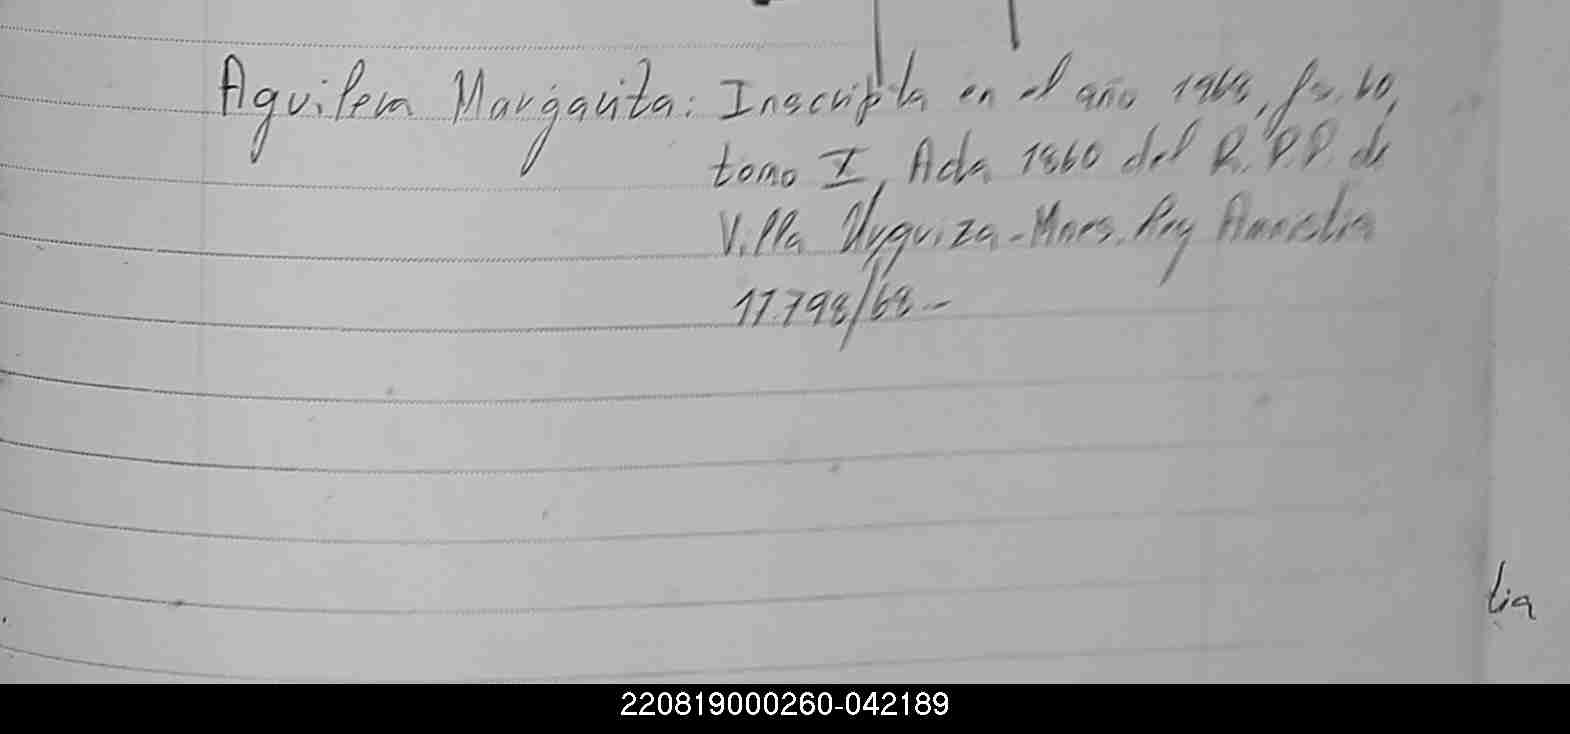 Aguilera Margarita: Inscripta en el año 1968, fs. 60,
tomo I, Acta 1860 del R.P.P. de
Villa Urquiza - Mnes. Ley Amnistia
17.798/68.-
tia
220819000260-042189